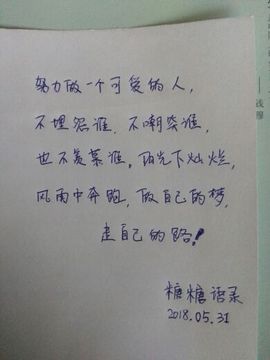 努力做一个可爱的人,
不埋怨谁.不嘲笑谁,
也不羡慕谁,阳光下灿烂,
风雨中奔跑,做自己的梦,
走自己的路!
糖糖语录
2018.05.31
钱穆